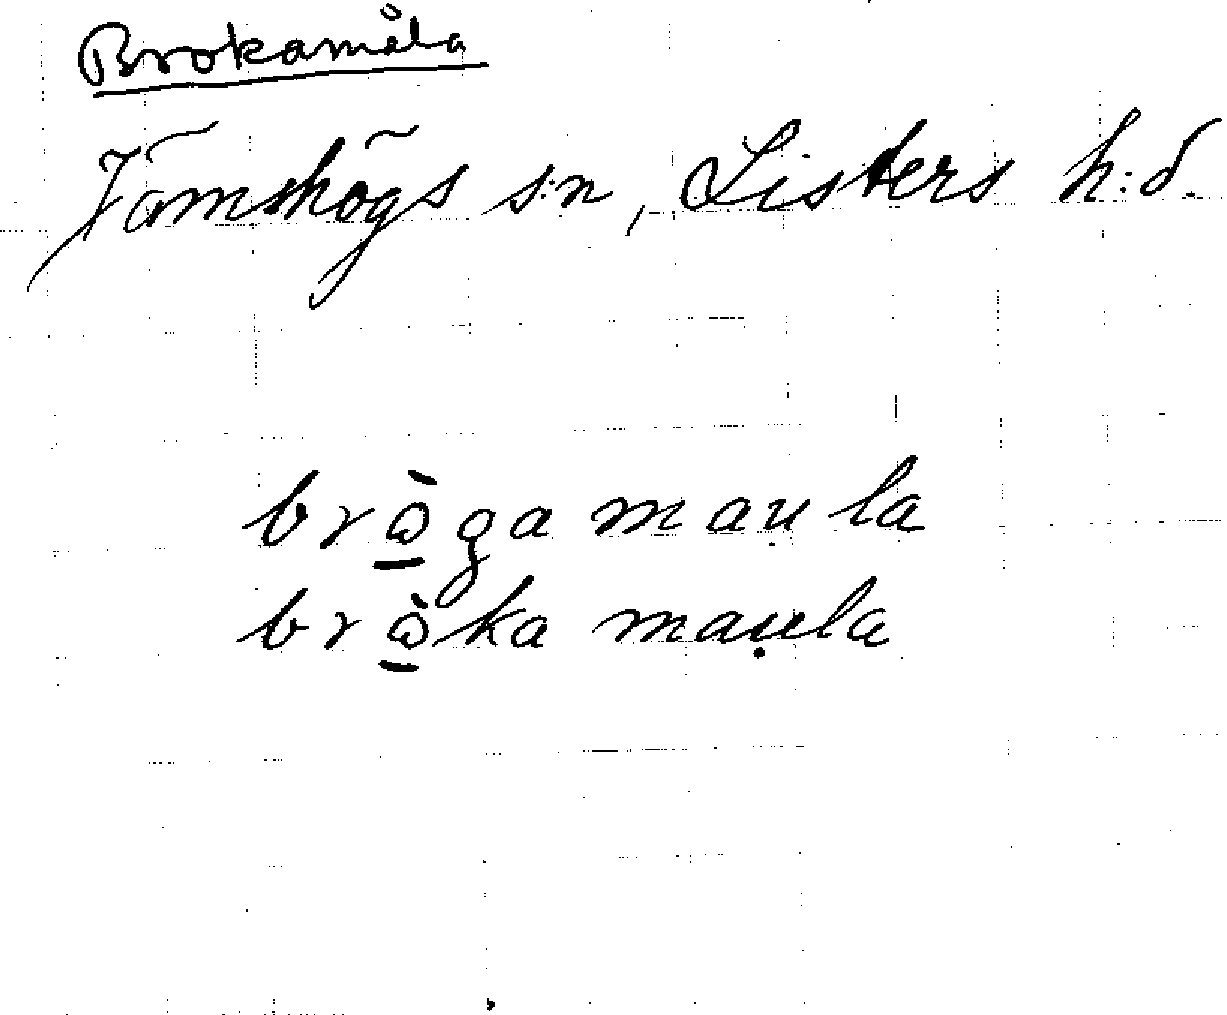 Brokamåla
Jämshögs s:n, Listers h:d.
brò̱gamaula
brò̱ka maụla